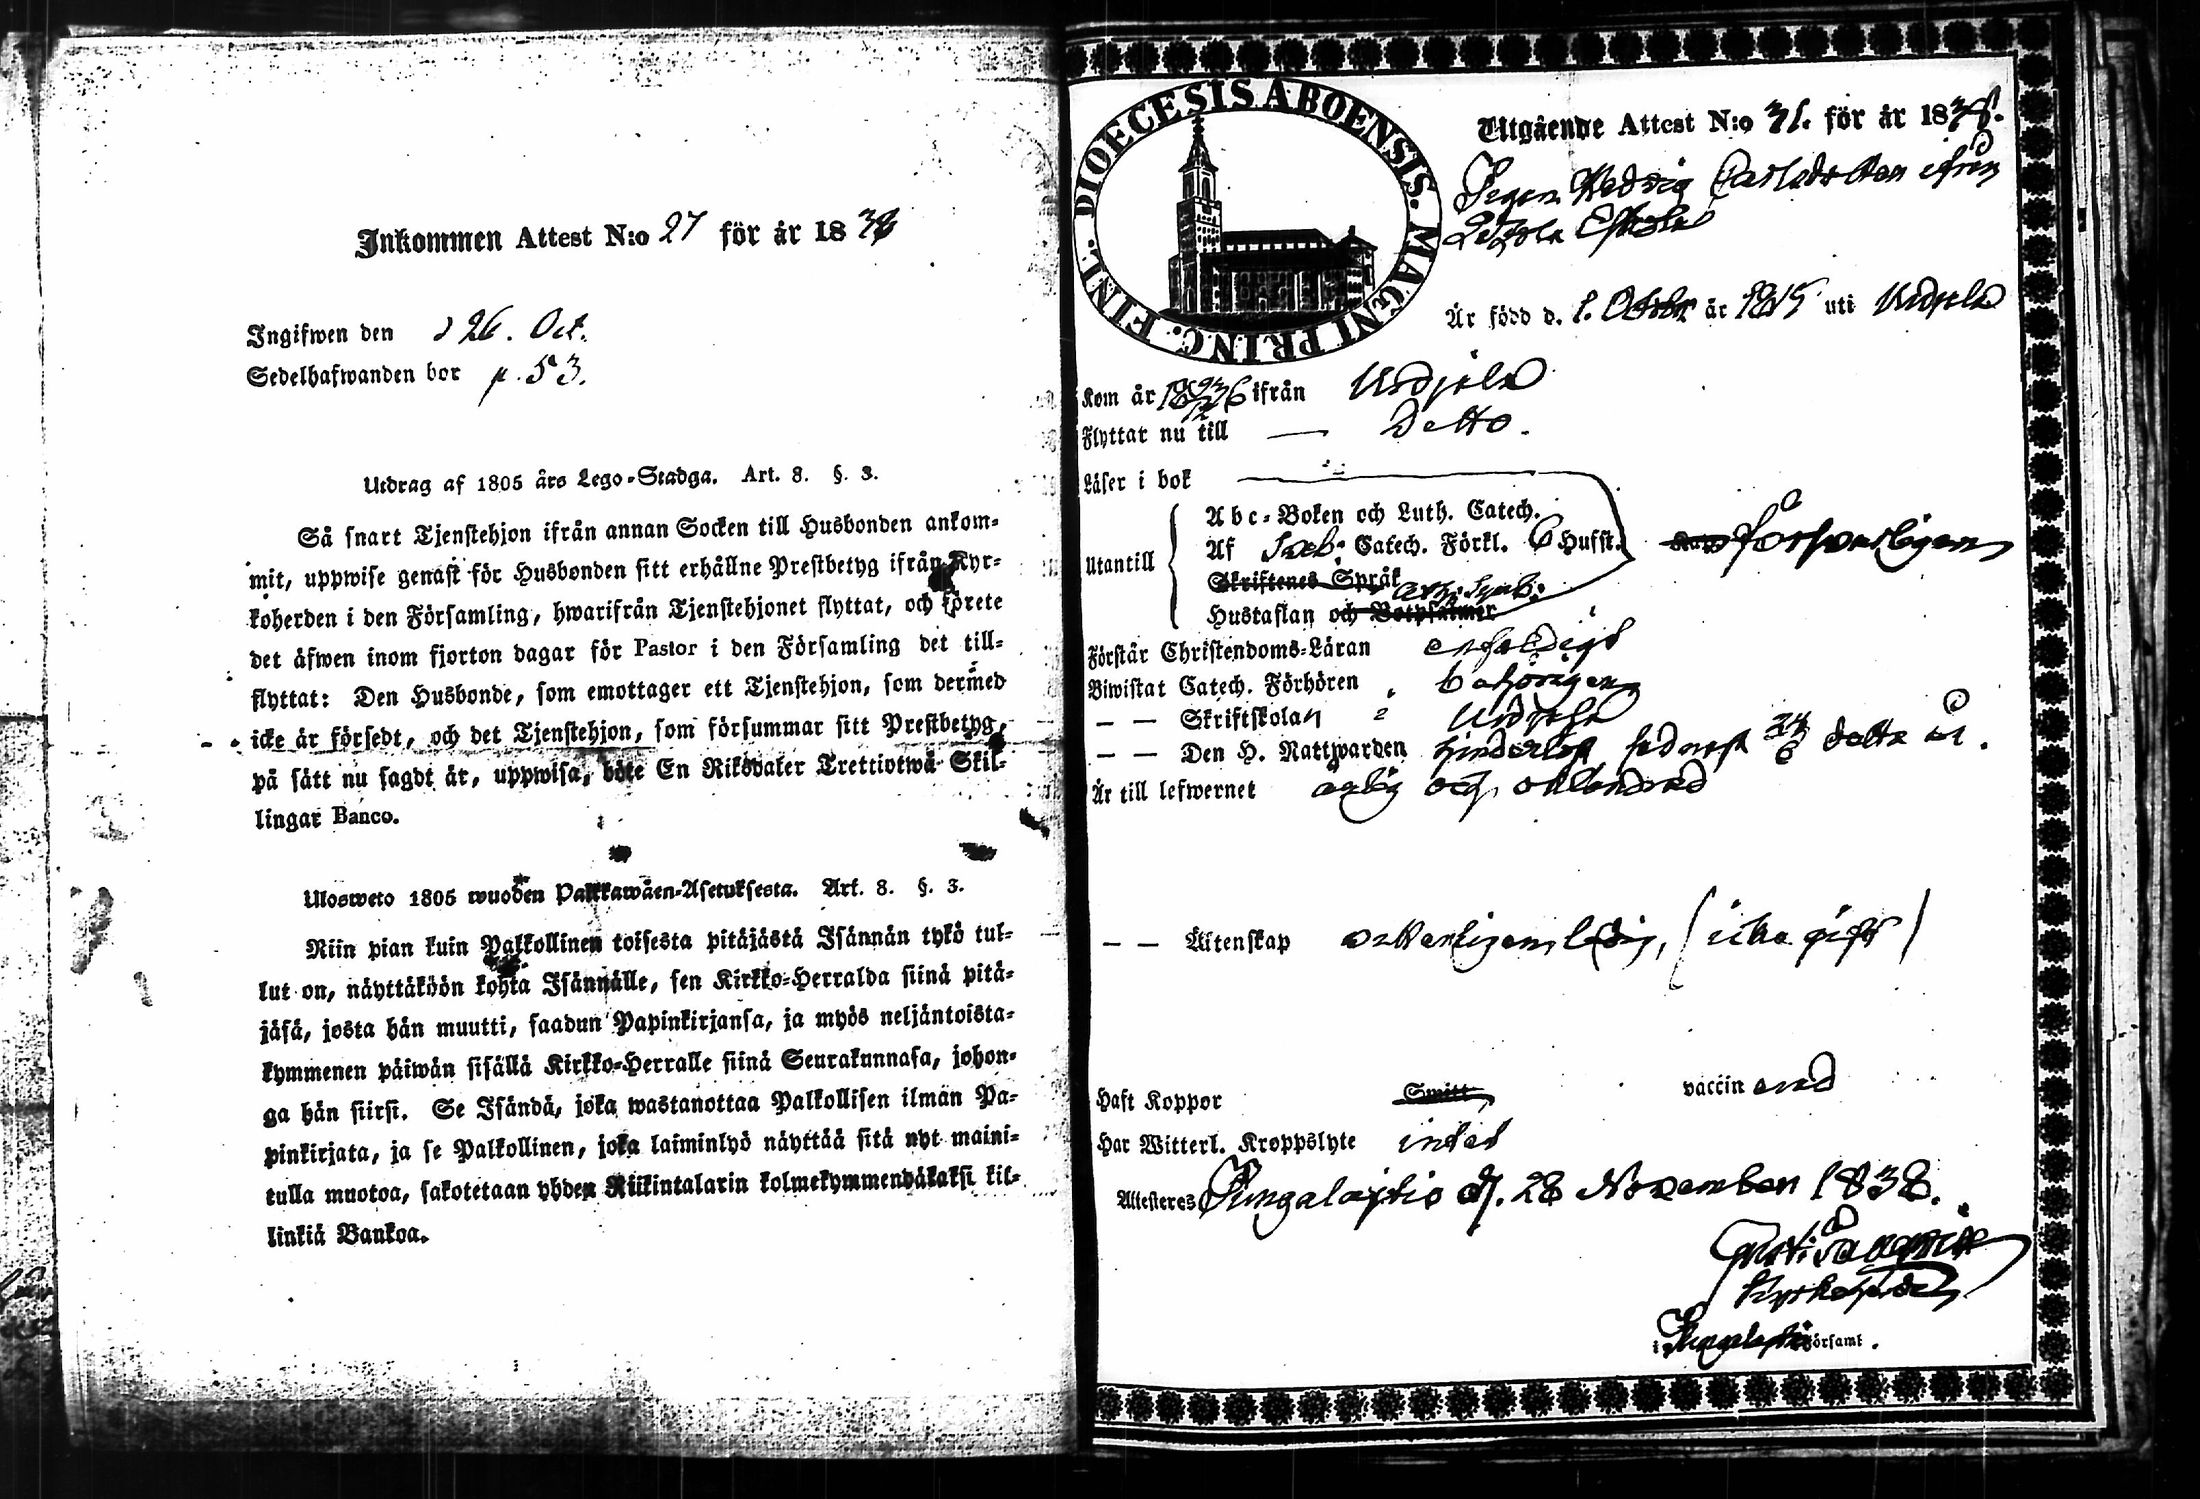 Inkommen Attest N:o 27 för år 18
Ingifwen den 26. Oct.
Sedelhafwanden bor p. 53.
Utdrag af 1805 års Lego-Stadga. Art. 8. §. 3.
Så snart Tjenstehjon ifrån annan Socken till Husbonden ankom-
mit, uppwise genast för Husbonden sitt erhållne Prestbetyg ifrån Kyr-
koherden i den Församling, hwarifrån Tjenstehjonet flyttat, och förete
det äfwen inom fjorton dagar för Pastor i den Församling det till-
flyttat: Den Husbonde, som emottager ett Tjenstehjon, som dermed
icke är försedt, och det Tjenstehjon, som försummar sitt Prestbetyg,
på sätt nu sagdt är, uppwisa, böte En Riksdaler Trettiotwå Skil-
lingar Banco.
Ulosweto 1805 wuoden Palkkawäen-Asetuksesta. Art. 8. §. 3.
Niin pian kuin Palkollinen toisesta pitäjästä Isännän tykö tul-
lut on, näyttäköön kohta Isännälle, sen Kirkko-Herralda siinä pitä-
jäsä, josta hän muutti, saadun Papinkirjansa, ja myös neljäntoista-
kymmenen päiwän sisällä Kirkko-Herralle siinä Seurakunnasa, johon-
ga hän siirsi. Se Isändä, joka wastanottaa Palkollisen ilman Pa-
pinkirjata, ja se Palkollinen, joka laiminlyö näyttää sitä nyt maini-
tulla muotoa, sakotetaan yhden Riikintalarin kolmekymmendäkaksi kil-
linkiä Bankoa.
DIOECESIS ABOENSIS. MAGNI PRINC. FINL.
Utgående Attest N:o 31. för år 1838.
Pigan Hedvig Carlsdotter ifrån
Är född d. 1. Octobr år 1815 uti Urdjala
Kom år 1836 ifrån Urdjala
Flyttar nu till — Detto.
Läser i bok
Abc-Boken och Luth. Catech.
Utantill Af Sveb. Catech. Förkl. Husst. försvarligen
Skriftenes Språk Ath. Symb.
Hustaflan och Botpsalmer
Förstår Christendoms-Läran enfaldigt
Biwistat Catech. Förhören behörigen
— — Skriftskolan Urdjala
— — Den H. Nattwarden sednast 24/6 detta år.
Är till lefwernet ärlig och oklandrad
— — Äktenskap veterligen ledig, (icke gift)
Haft Koppor Smitt vaccinerad
Har Witterl. Kroppslyte intet
Attesteres Pungalaitio d. 28 November 1838.
Kyrkoherde
i Pungalaitio Församl.